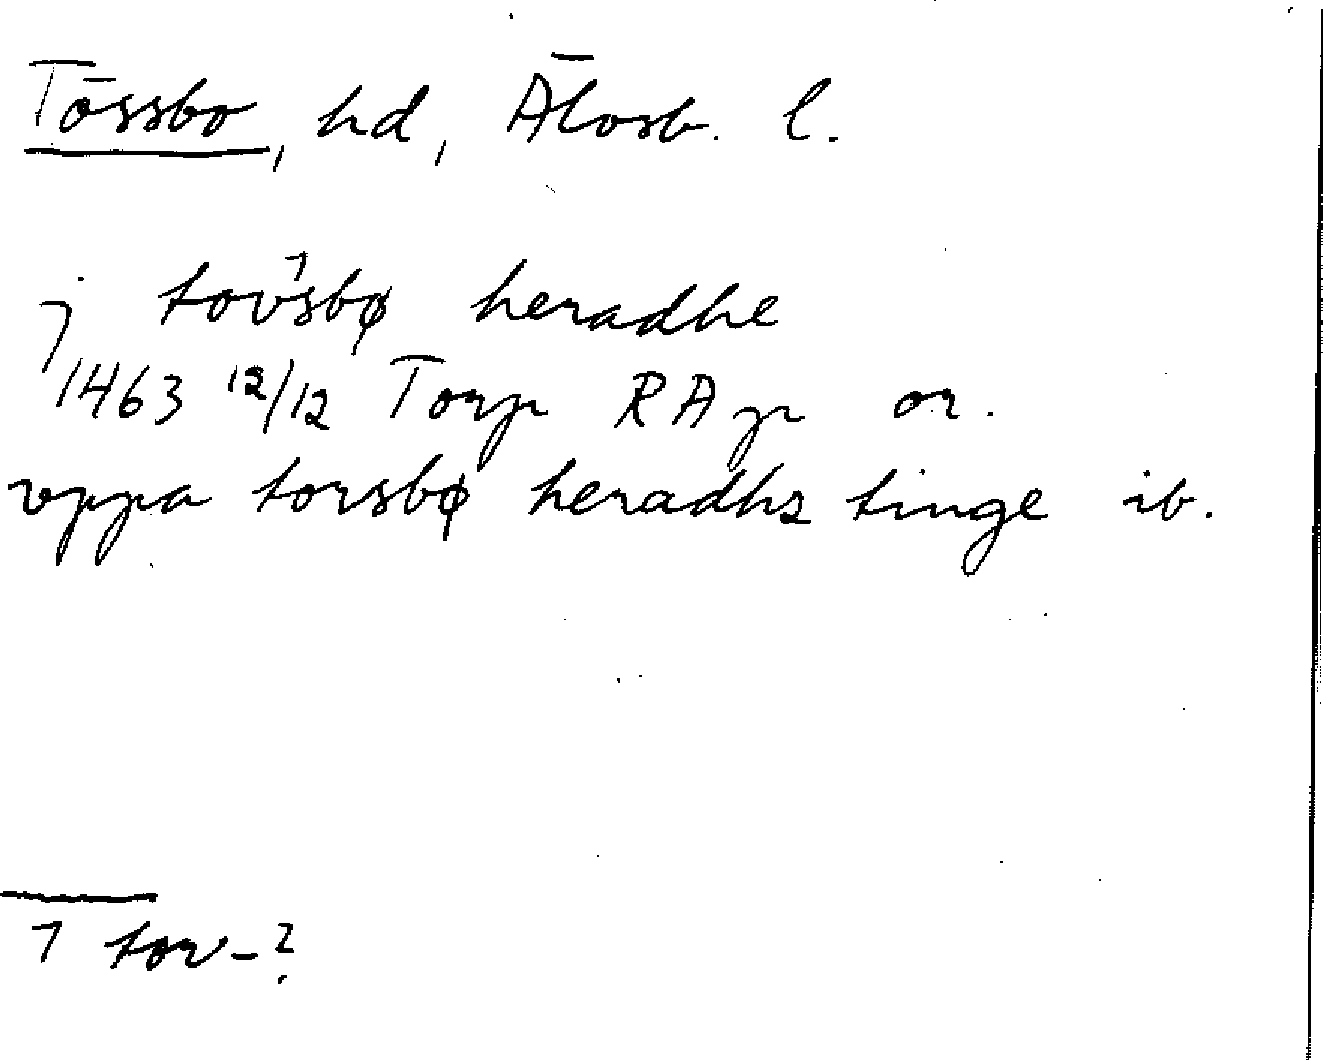 Tössbo, hd, Älvsb. l.
j tovsbø¹ heradhe
1463 12/12 Torp RAp or.
vppa torsbø heradhz tinge ib.
1 tor-?